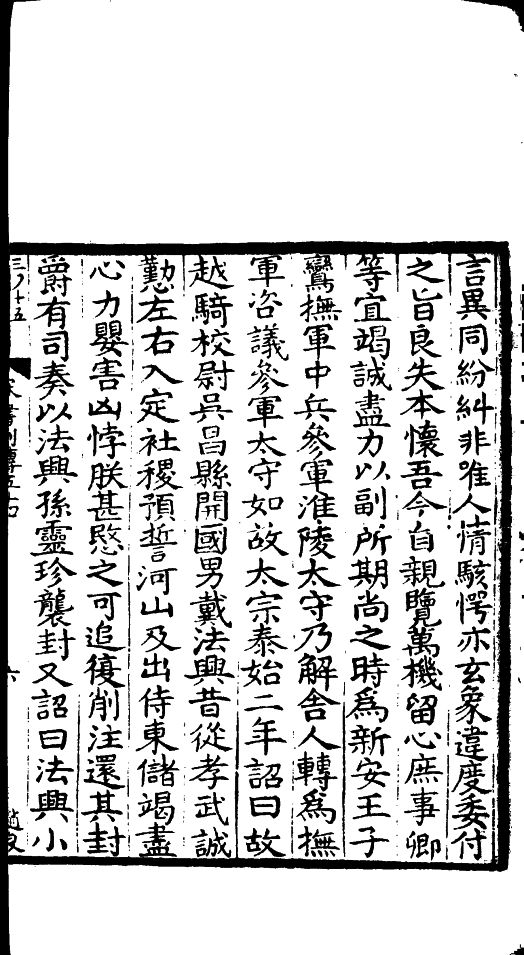 言異同紛糾非唯人情駭愕亦玄象違度委付
之旨良失本懷吾今自親覽萬機留心庶事卿
等宜竭誠盡力以副所期尚之時爲新安王子
鸞撫軍中兵參軍淮陵太守乃解舍人轉爲撫
軍咨議參軍太守如故太宗泰始二年詔曰故
越騎校尉吳昌縣開國男戴法興昔從孝武誠
懃左右入定社稷預誓河山及出侍東儲竭盡
心力嬰害凶悖朕甚愍之可追復削注還其封
爵有司奏以法興孫靈珍襲封又詔曰法興小
六